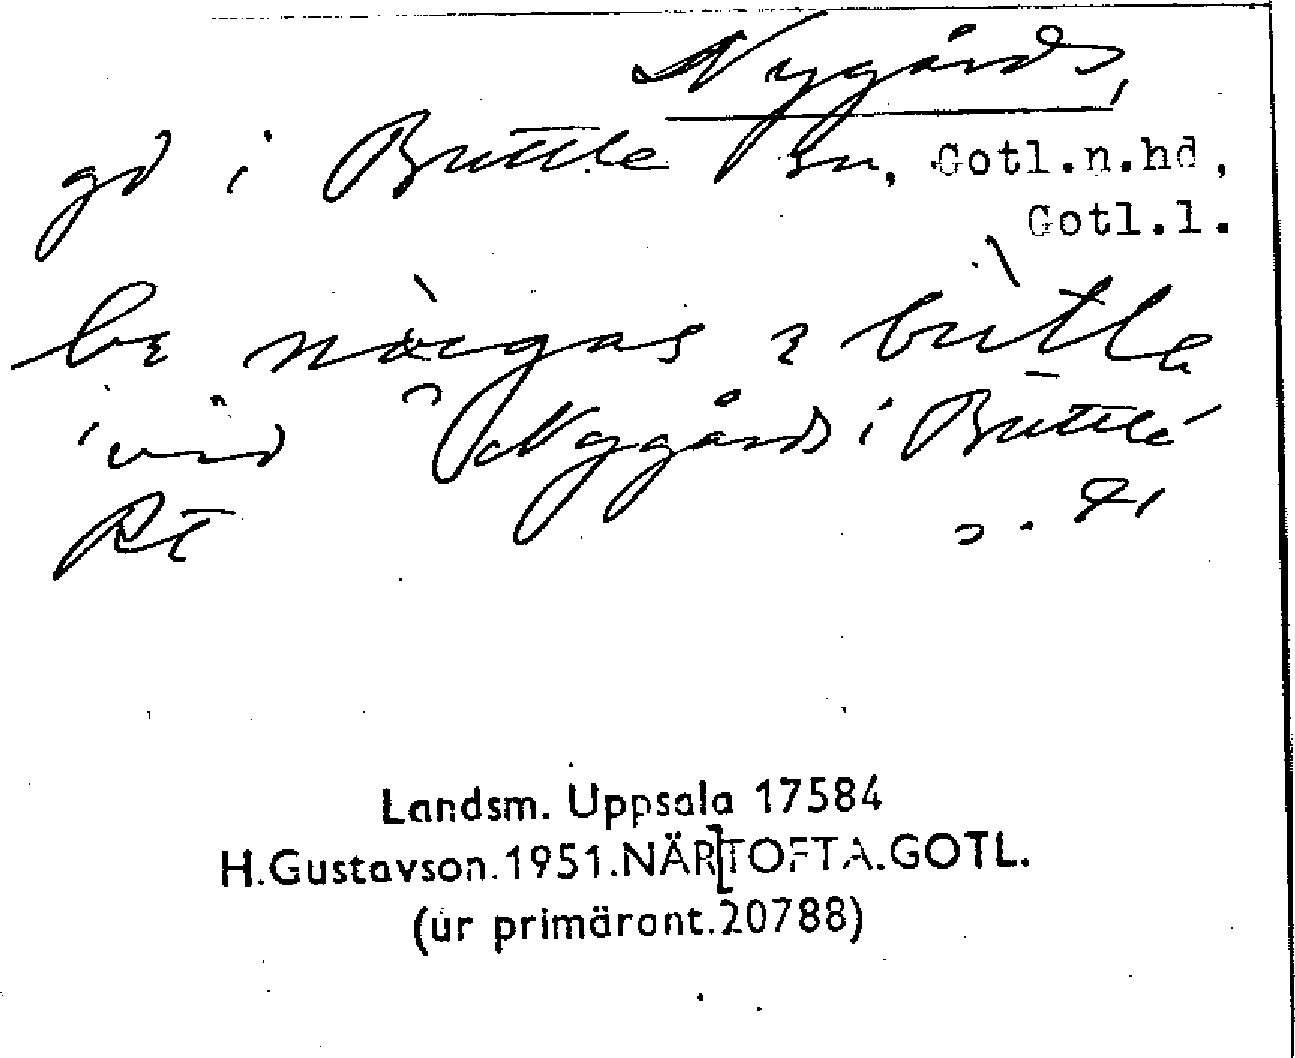 Nygårds,
gd i Buttle sn, Gotl.n.hd,
Gotl.l.
'vid Nygårds i Buttle'
Landsm. Uppsala 17584
H.Gustavson.1951.NÄR[TOFTA.GOTL.
(ur primärant.20788)